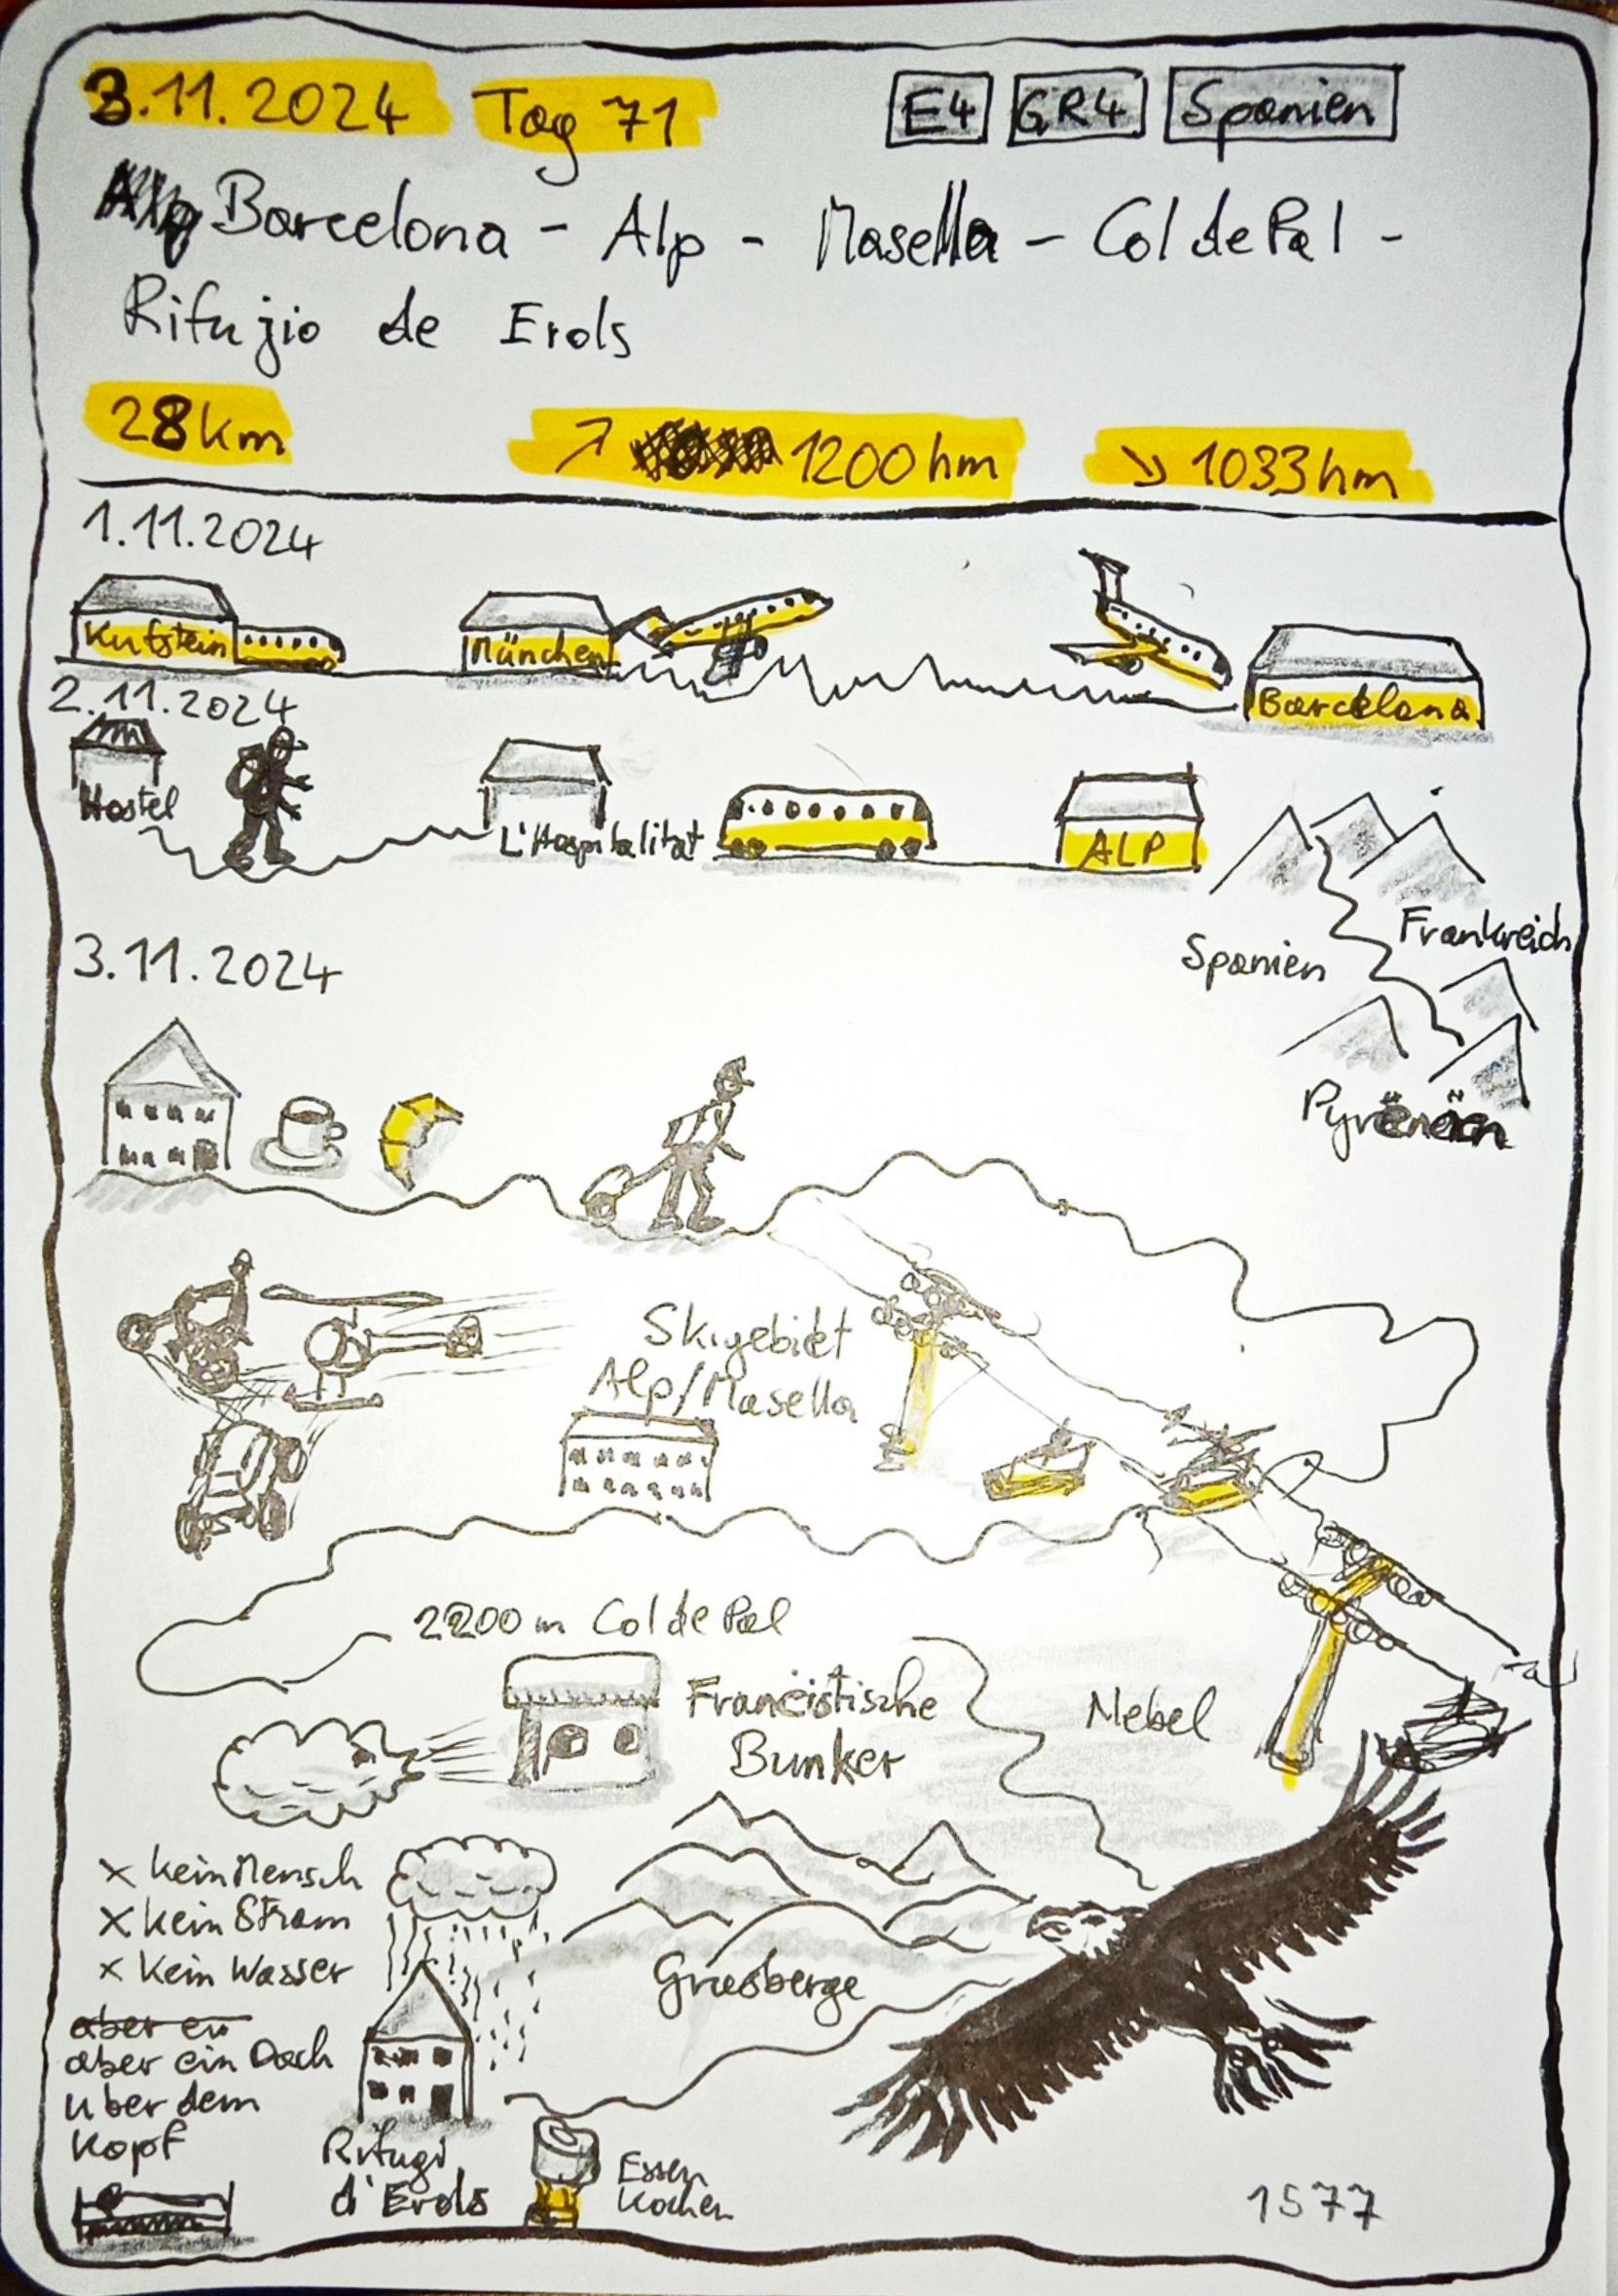 3.11.2024 Tag 71 E4 GR4 Spanien
Barcelona - Alp - Masella - Col de Pal -
Rifugio de Erols
28km ↗ 1200hm ↘ 1033hm
1.11.2024
Kufstein München Barcelona
2.11.2024
Hostel L'Hospitalitat ALP
Spanien Frankreich
Pyrenäen
3.11.2024
Skigebiet
Alp/Masella
2200m Col de Pal
Francistische
Bunker
Nebel
x kein Mensch
x kein Strom
x kein Wasser
aber ein
aber ein Dach
über dem
Kopf
Grasberge
Rifugi
d'Erols
Essen
Kochen
1577